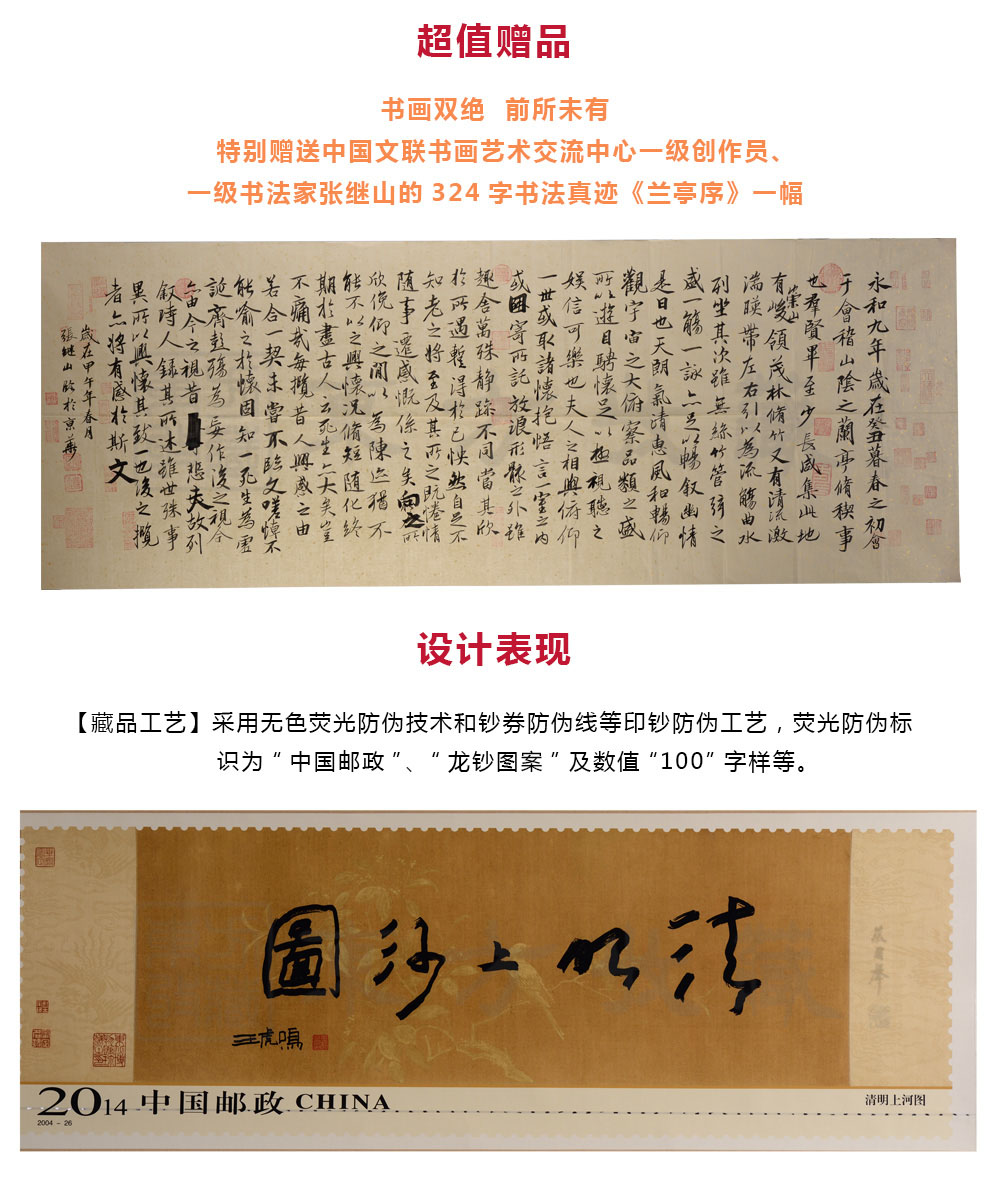 超值赠品
书画双绝 前所未有
特别赠送中国文联书画艺术交流中心一级创作员、
一级书法家张继山的 324 字书法真迹《兰亭序》一幅
永和九年歲在癸丑暮春之初會
于會稽山陰之蘭亭脩稧事
也羣賢畢至少長咸集此地
有崇山峻領茂林脩竹又有清流激
湍暎帶左右引以為流觴曲水
列坐其次雖無絲竹管弦之
盛一觴一詠亦足以暢叙幽情
是日也天朗氣清惠風和暢仰
觀宇宙之大俯察品類之盛
所以遊目騁懷足以極視聽之
娛信可樂也夫人之相與俯仰
一世或取諸懷抱悟言一室之內
或因寄所託放浪形骸之外雖
趣舍萬殊静躁不同當其欣
於所遇暫得於己怏然自足不
知老之將至及其所之既惓情
隨事遷感慨係之矣向之所
欣俛仰之間以為陳迹猶不
能不以之興懷況脩短隨化終
期於盡古人云死生亦大矣豈
不痛哉每攬昔人興感之由
若合一契未嘗不臨文嗟悼不
能喻之於懷固知一死生為虛
誕齊彭殤為妄作後之視今
亦由今之視昔悲夫故列
叙時人録其所述雖世殊事
異所以興懷其致一也後之攬
者亦將有感於斯文
歲在甲午年春月
張继山临於京華
设计表现
【藏品工艺】采用无色荧光防伪技术和钞券防伪线等印钞防伪工艺，荧光防伪标
识为 " 中国邮政 "、" 龙钞图案 " 及数值 "100" 字样等。
清明上河圖
王虎鸣
2014 中国邮政 CHINA
2004－26
清明上河图